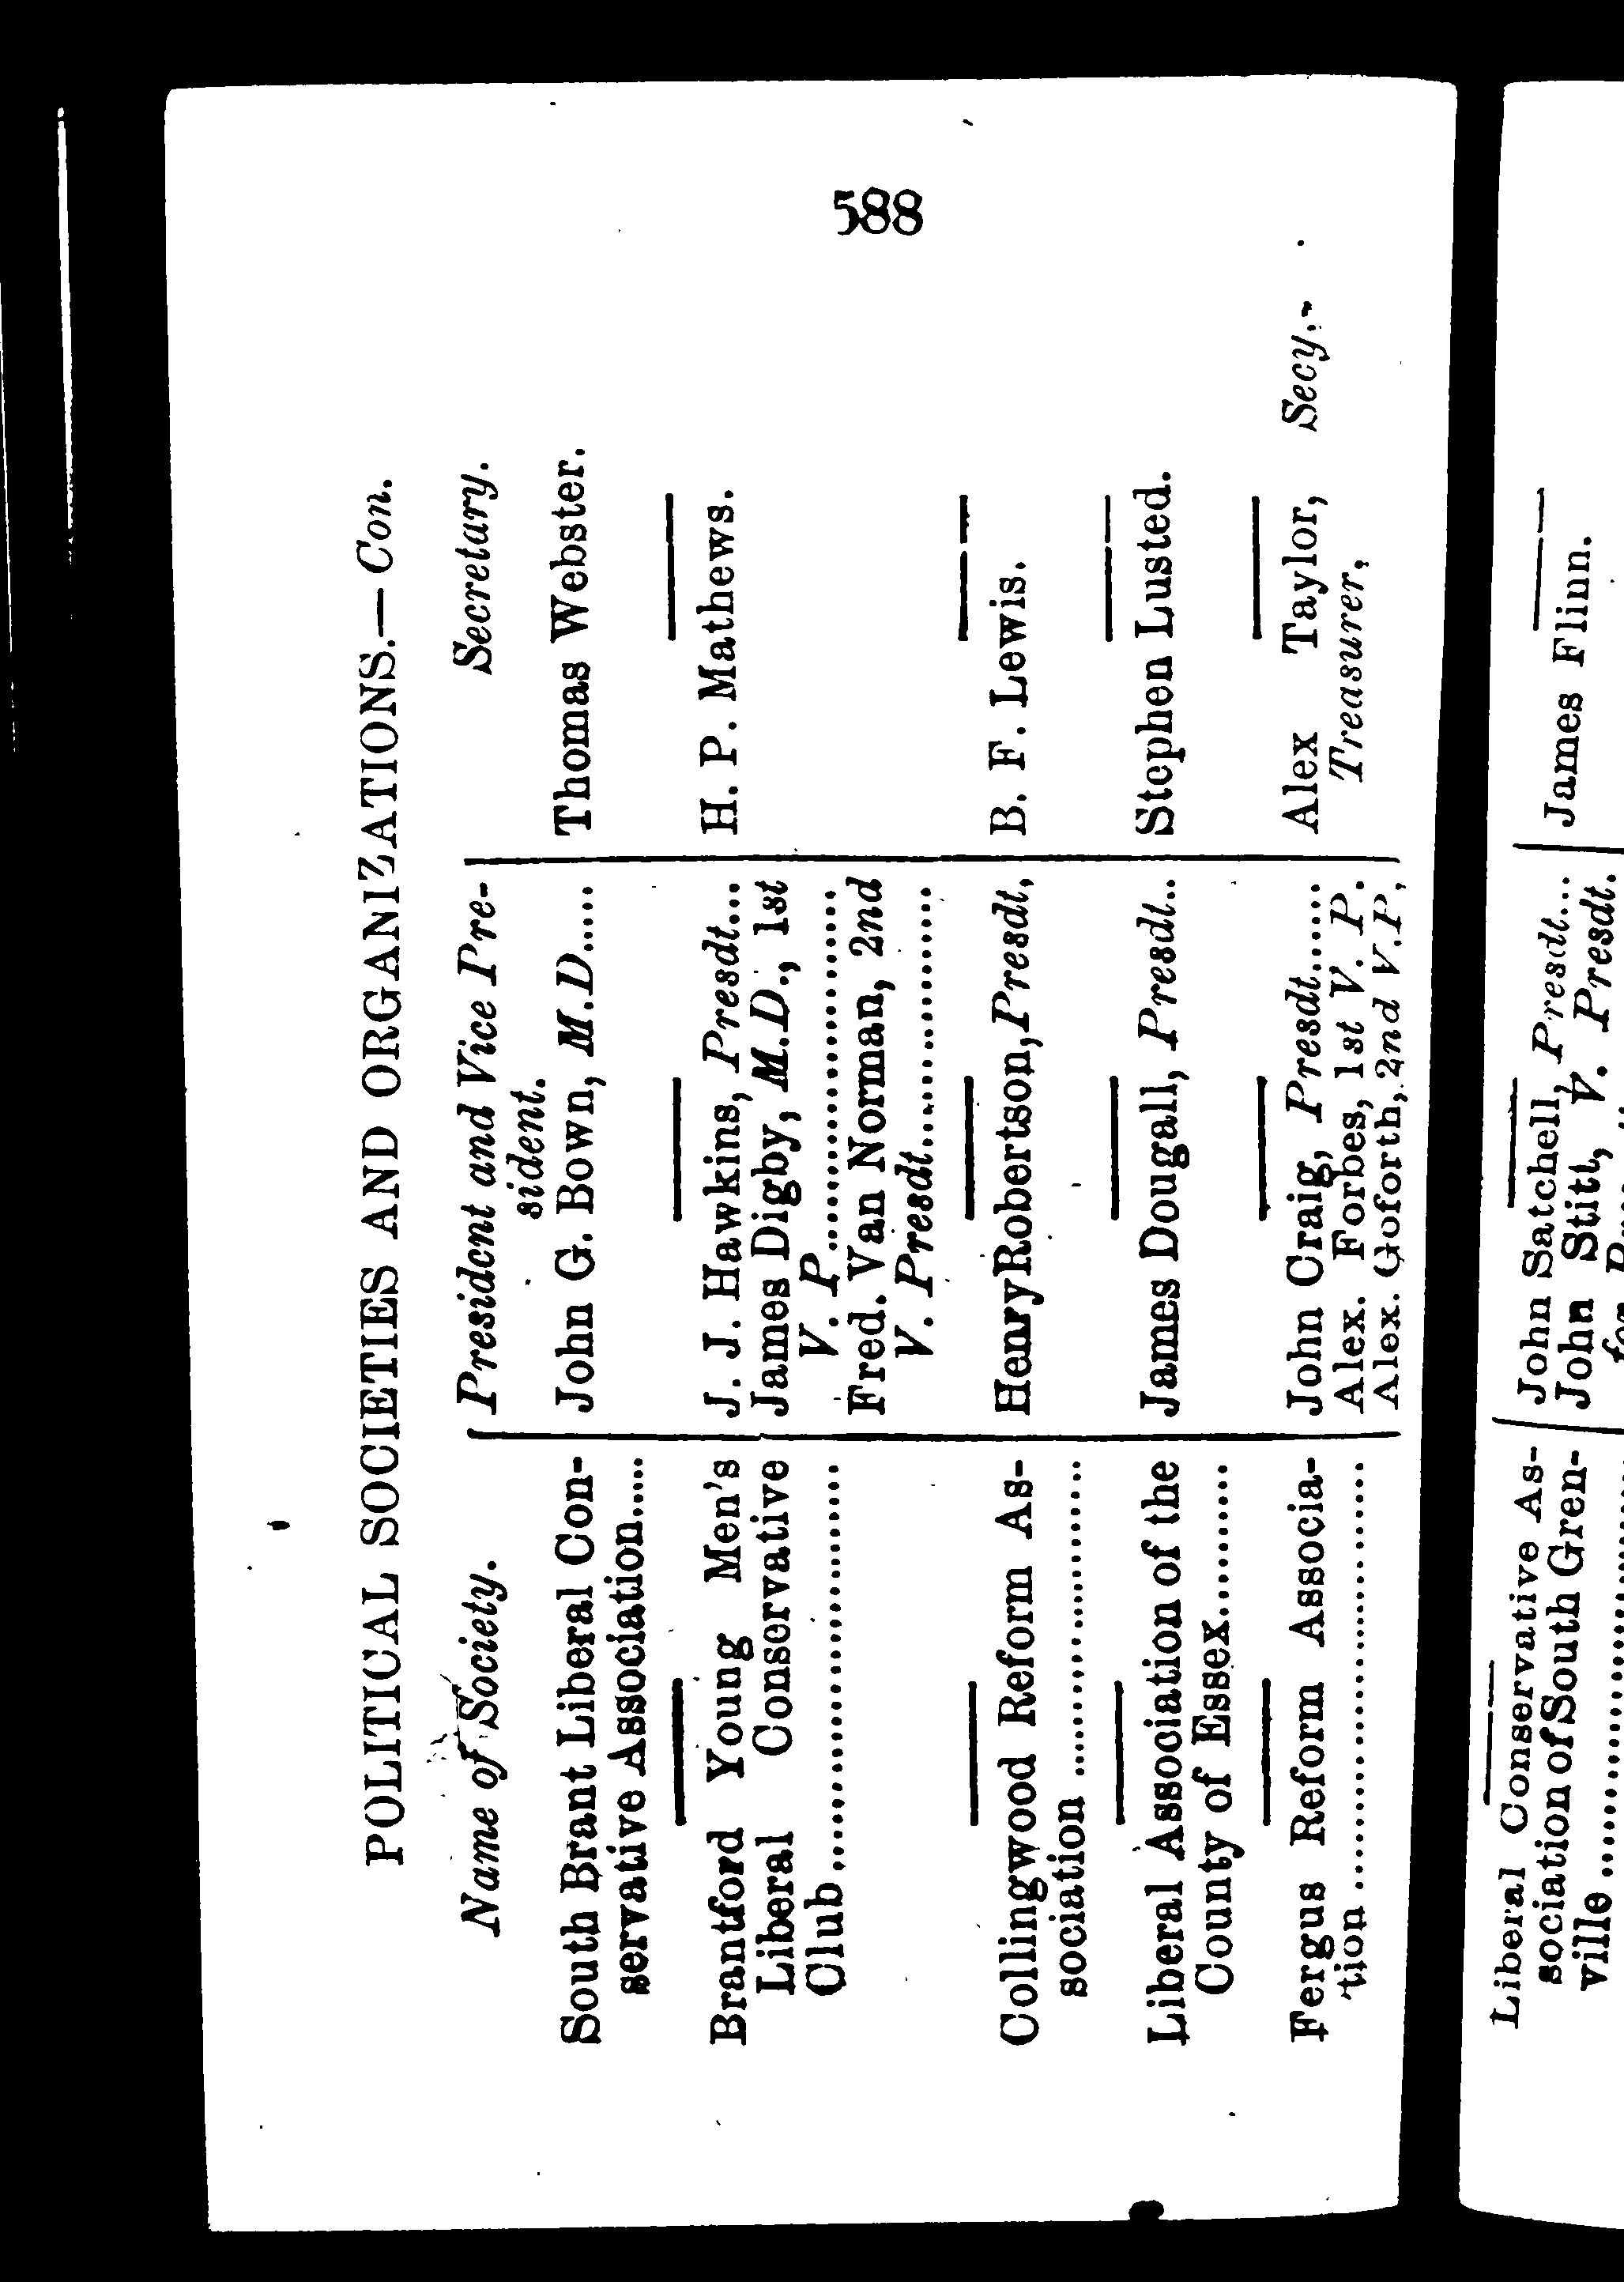 588
POLITICAL SOCIETIES AND ORGANIZATIONS.—Con.
Name of Society.
President and Vice Pre-
sident.
Secretary.
South Brant Liberal Con-
servative Association.....
John G. Bown, M.D.....
Thomas Webster.
Brantford Young Men's
Liberal Conservative
Club..............................
J. J. Hawkins, Presdt...
James Digby, M.D., 1st
V. P..........................
Fred. Van Norman, 2nd
V. Presdt...................
H. P. Mathews.
Collingwood Reform As-
sociation ......................
Henry Robertson, Presdt,
B. F. Lewis.
Liberal Association of the
County of Essex...........
James Dougall, Presdt..
Stephen Lusted.
Fergus Reform Associa-
tion ..............................
John Craig, Presdt.......
Alex. Forbes, 1st V. P.
Alex. Goforth, 2nd V.P,
Alex Taylor, Secy.-
Treasurer,
Liberal Conservative As-
sociation of South Gren-
ville ..............................
John Satchell, Presdt...
John Stitt, V. Presdt.
for
James Flinn.